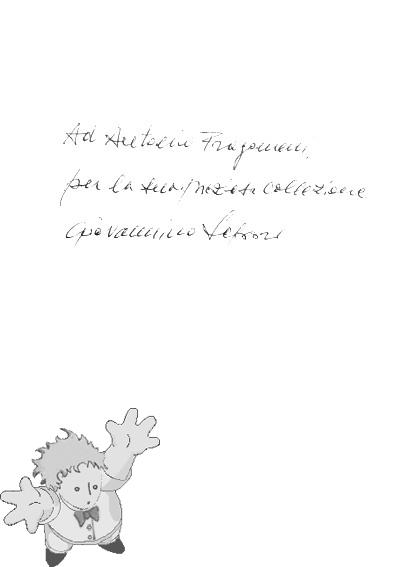 Ad Antonio Fragomeni,
per la sua preziosa collezione
Giovannino